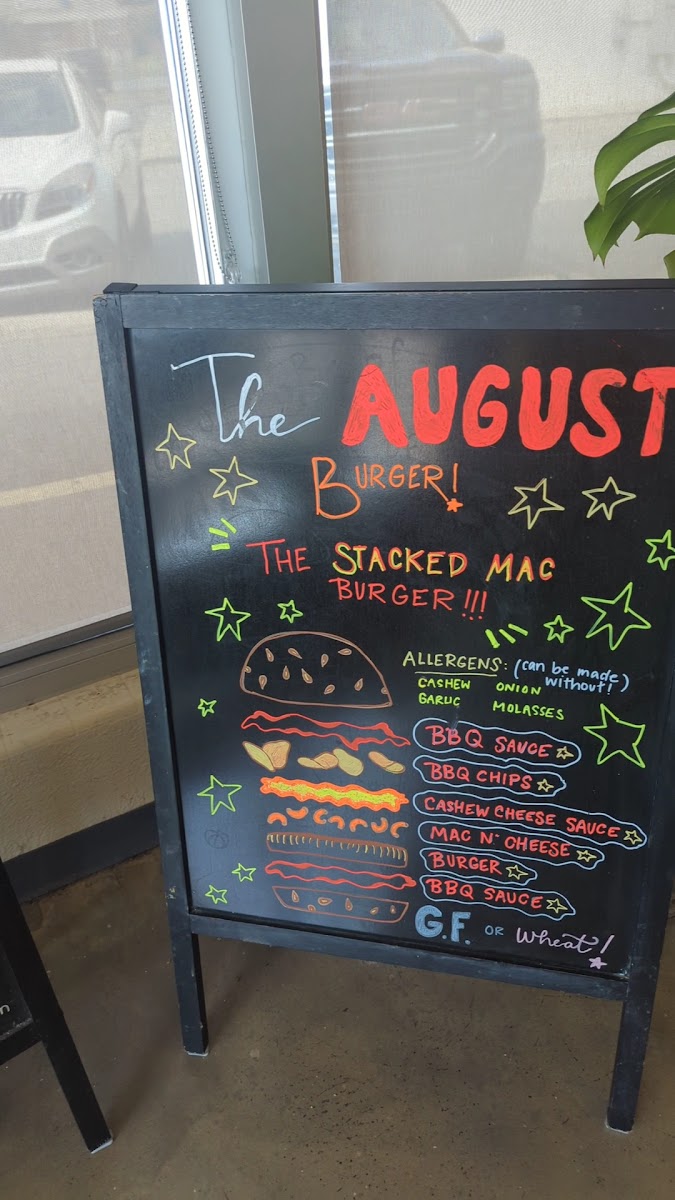 The AUGUST
BURGER!
THE STACKED MAC
BURGER!!!
ALLERGENS: (can be made without!)
CASHEW ONION
GARLIC MOLASSES
BBQ SAUCE
BBQ CHIPS
CASHEW CHEESE SAUCE
MAC N' CHEESE
BURGER
BBQ SAUCE
G.F. OR Wheat!